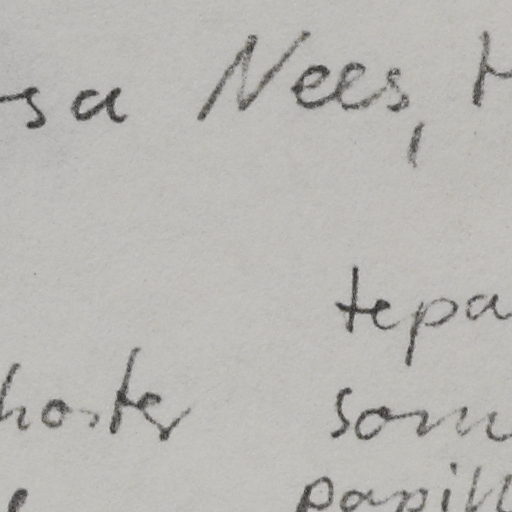 sa Nees, H
tepa
hoster som
papill